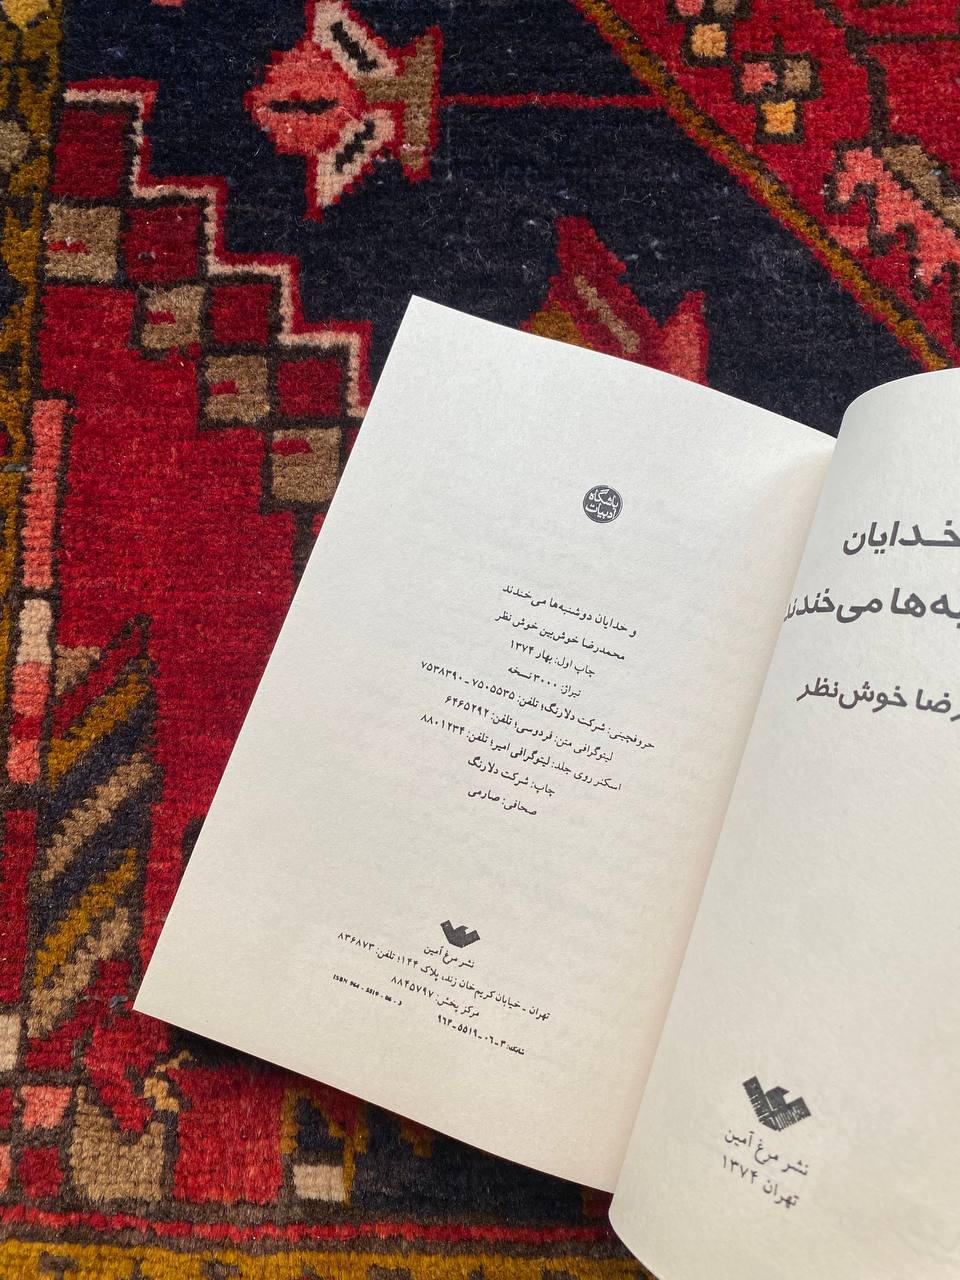 باشگاه
ادبیات
و خدایان دوشنبه‌ها می‌خندند
محمدرضا خوش‌بین خوش نظر
چاپ اول: بهار ۱۳۷۴
تیراژ: ۳۰۰۰ نسخه
حروفچینی: شرکت دلارنگ؛ تلفن: ۷۵۰۵۵۳۵ ـ ۷۵۳۸۳۹۰
لیتوگرافی متن: فردوسی؛ تلفن: ۶۴۶۵۲۹۲
اسکنر روی جلد: لیتوگرافی امیر؛ تلفن: ۸۸۰۱۲۳۴
چاپ: شرکت دلارنگ
صحافی: صارمی
نشر مرغ آمین
تهران ـ خیابان کریم‌خان زند، پلاک ۱۴۴؛ تلفن: ۸۳۶۸۷۳
مرکز پخش: ۸۸۴۵۷۹۷
شابک: ۳ـ۰۶ـ۵۵۱۹ـ۹۶۴
ISBN 964 - 5519 - 06 - 3
خدایان
به‌ها می‌خندند
رضا خوش‌نظر
نشر مرغ آمین
تهران ۱۳۷۴